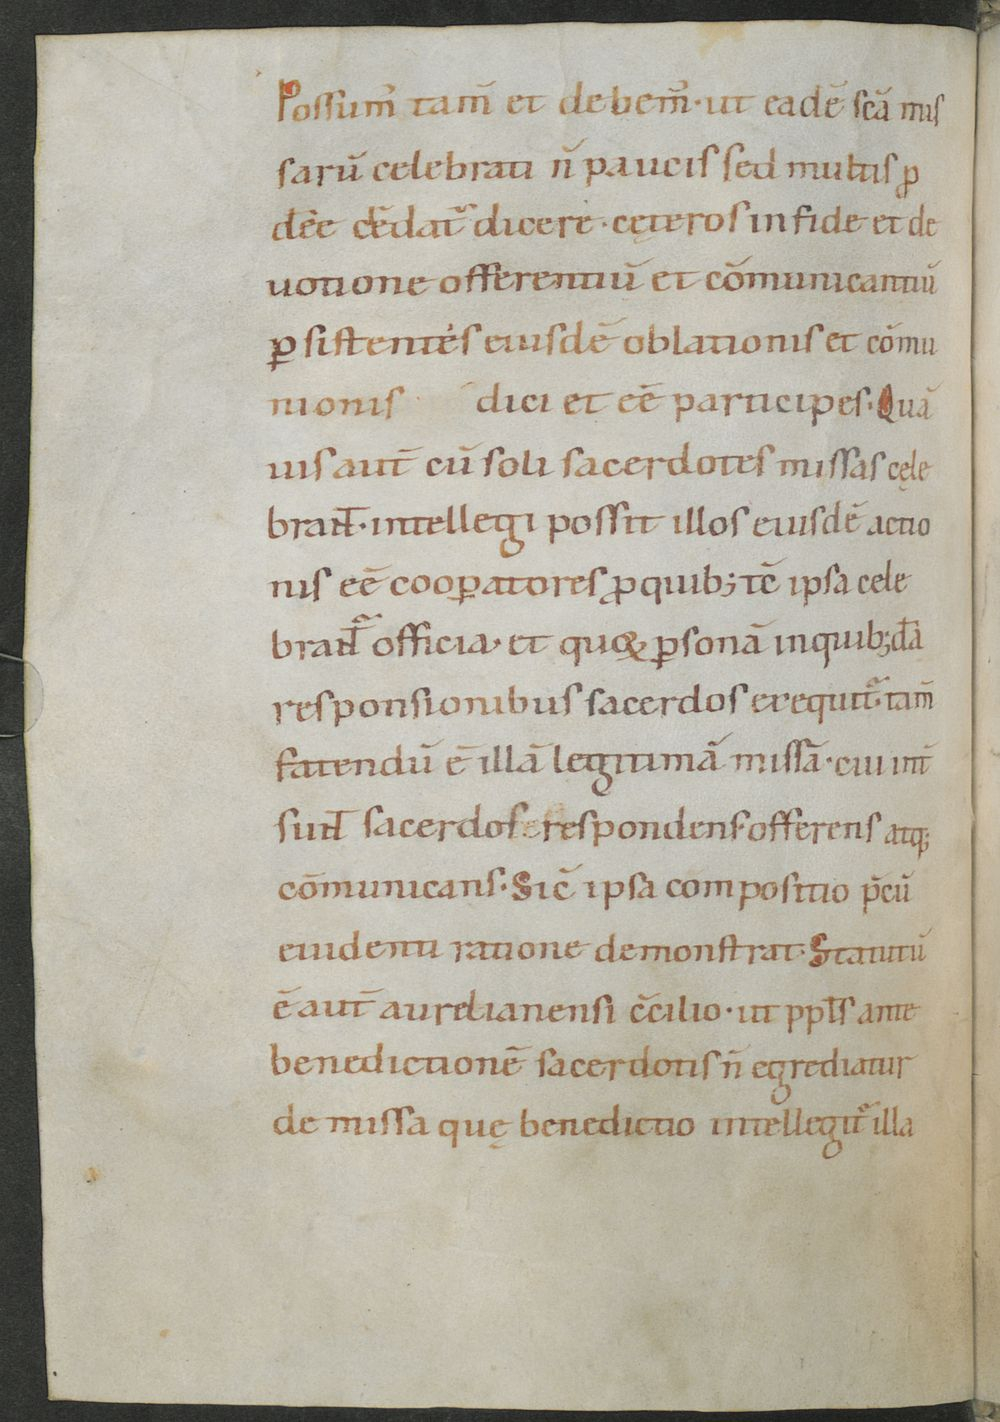 Possum᷒ tam̄ et debem᷒· ut eadē scā mis
sarū celebrati n̄ paucis sed multis ꝓ
dēe cēdat᷑ dicere· cęteros in fide et de
uotione offerentiū et cōmunicantiū
ꝑsistentes eiusdē oblationis et cōmu
nionis dici et eē participes· Quā
uis aut̄ cū soli sacerdotes missas cęle
brant̄· intellegi possit illos eiusdē actio
nis eē cooꝑatores ꝓ quib; tc̄ ipsa cele
brant᷑ officia· et quoꝝ ꝑsonā in quib;dā
responsionibus sacerdos exequit᷑· tam̄
fatendū ē illā legitimā missā· cui int̄
sunt̄ sacerdos respondens offerens atq;
cōmunicans· Sic̄ ipsa compositio p̄cū
euidenti ratione demonstrat· Statutū
ē aut̄ aurelianensi c̄cilio· ut ppl̄s ante
benedictionē sacerdotis n̄ egrediatur
de missa quę benedictio intellegit᷑ illa